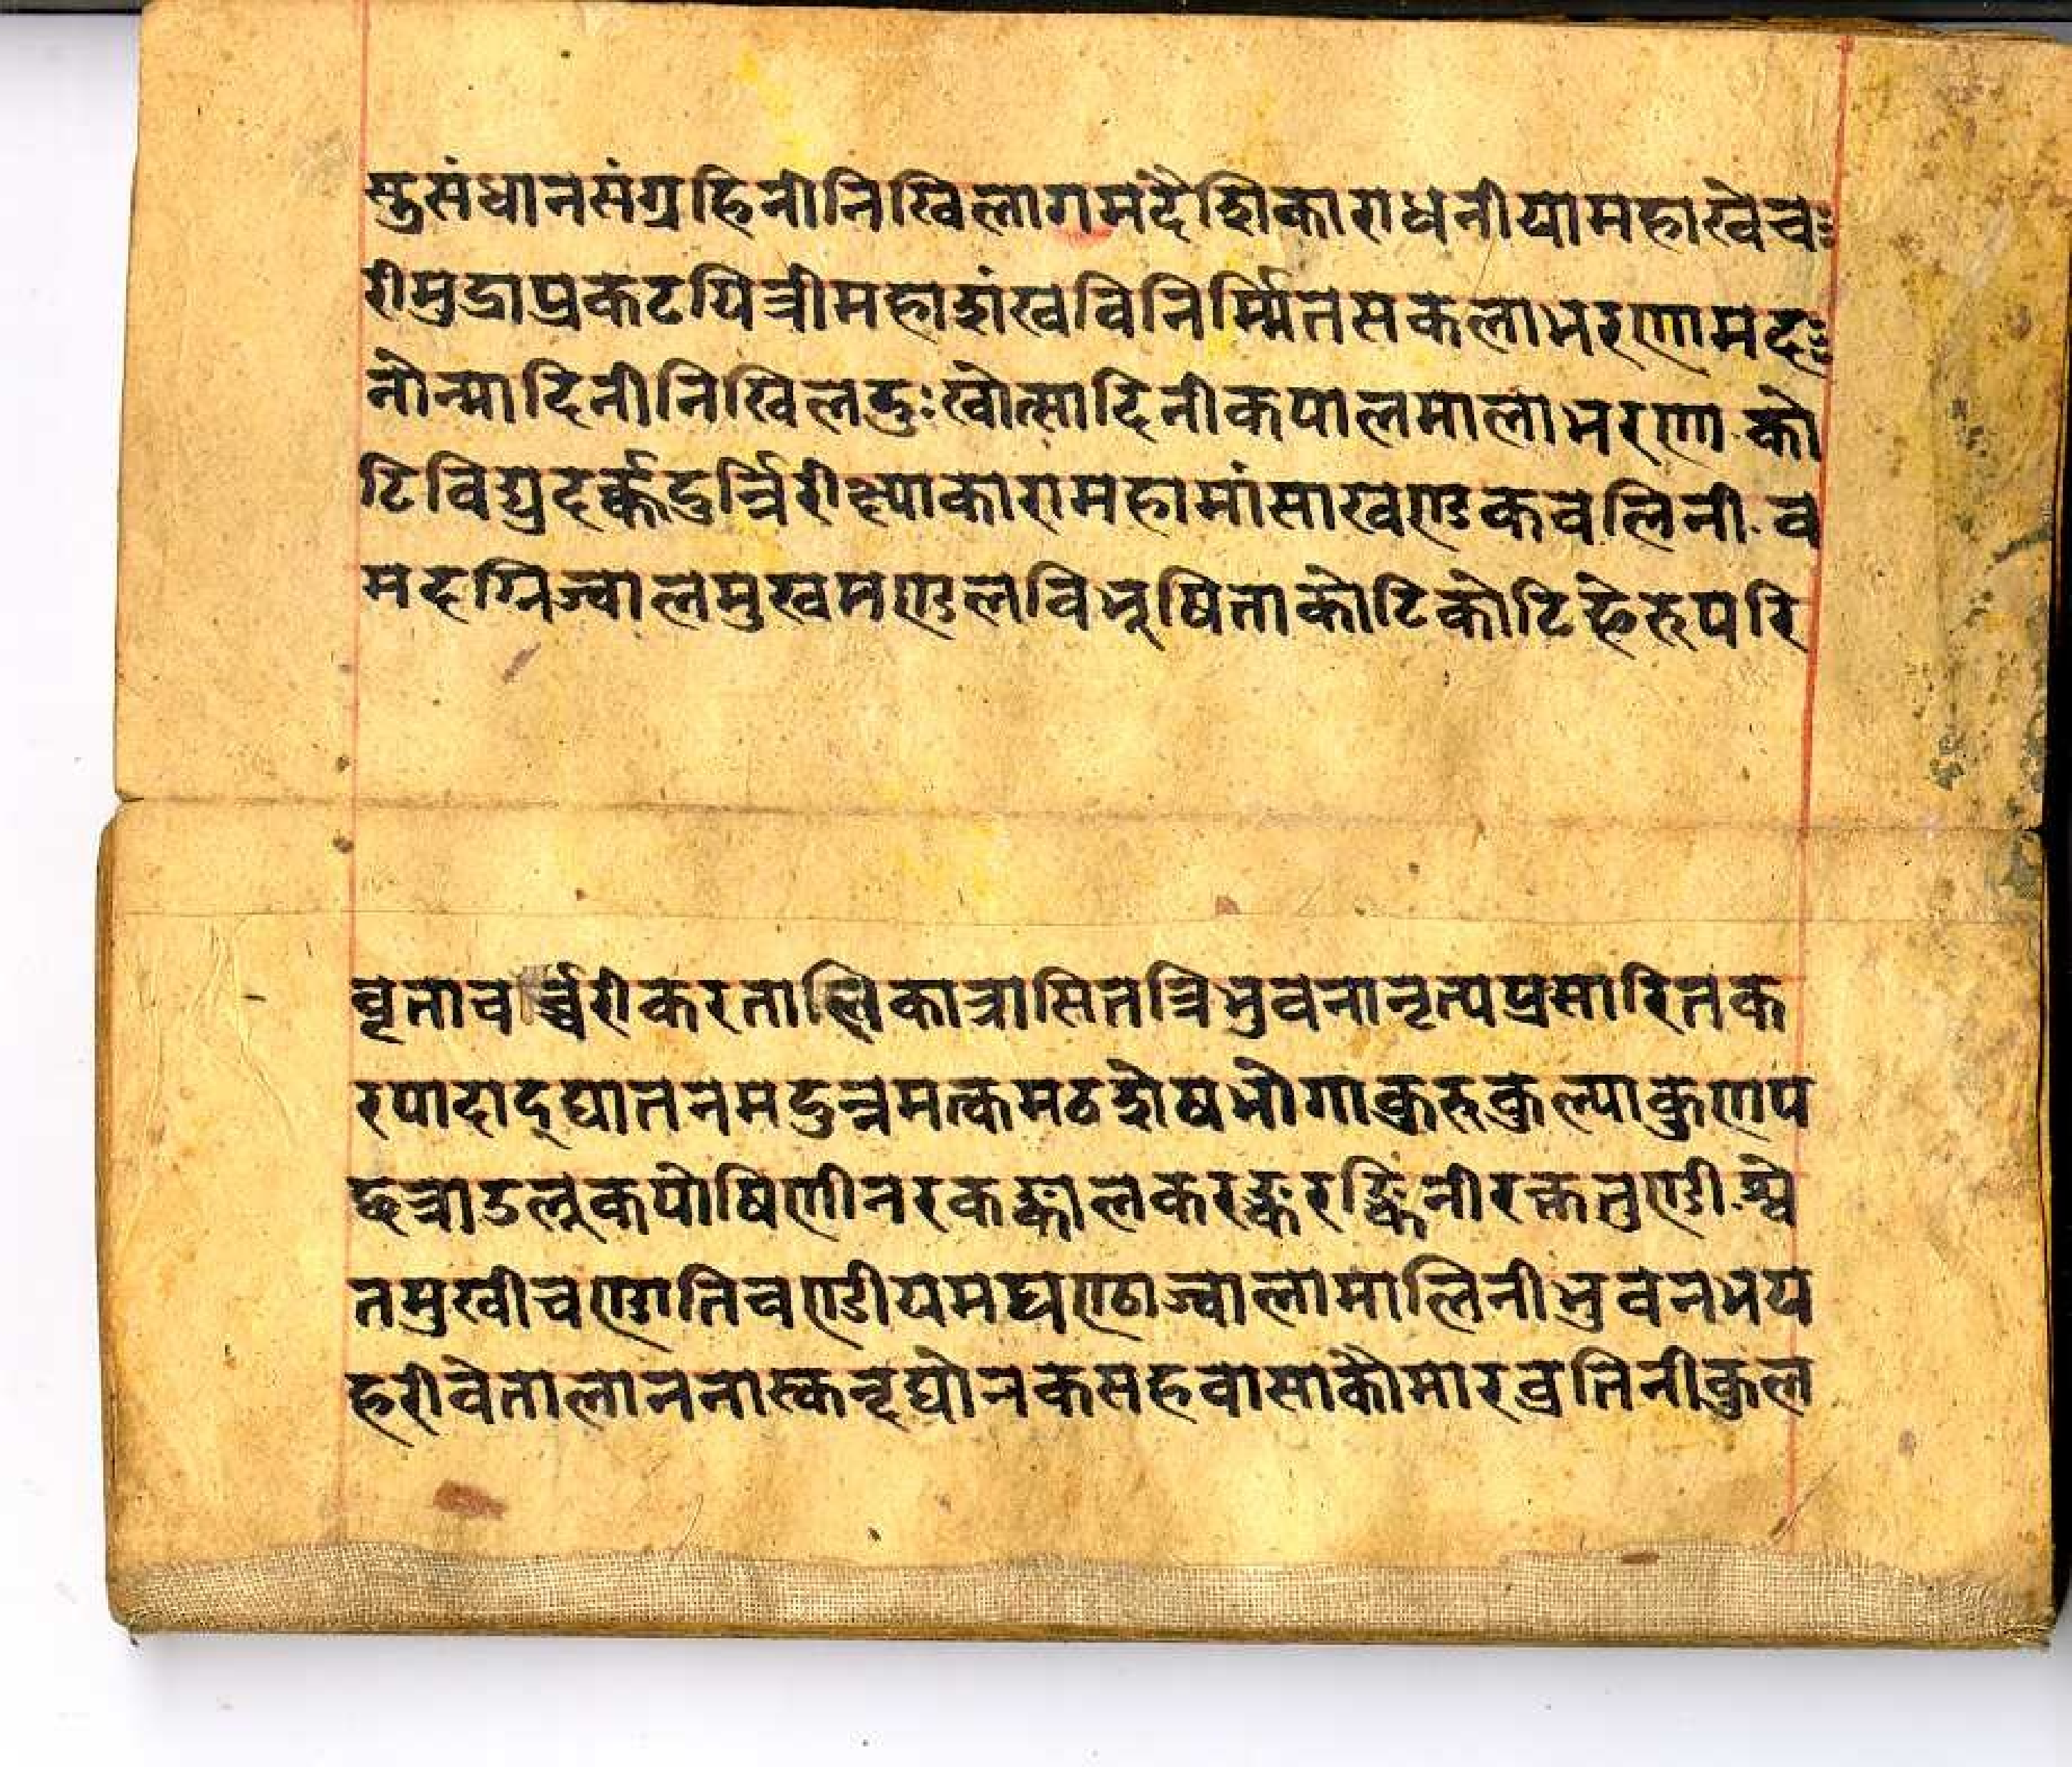 स्तुसंधानसंग्रहिनीनिखिलागमदैशिकाराधनीयामहाखेच
रीमुद्राप्रकटयित्रीमहाशंखविनिर्म्मितसकलाभरणामद
नोन्मादिनीनिखिलदुःखोत्सादिनीकपालमालाभरणा को
टिविद्युदर्क्कदुर्न्निरीक्ष्याकारामहामांसाखण्डकवलिनी व
मदग्निज्वालमुखमण्डलविभूषिताकोटिकोटिफेरुपरि
वृताचर्च्चरीकरतालिकात्रासितत्रिभुवनानृत्यप्रसारितक
रपादाद्घातनमदुन्नमत्कमठशेषभोगाकुरुकुल्याकुणप
छत्राडलूकपोषिणीनरकङ्कालकरङ्करङ्किनीरक्ततुण्डी श्वे
तमुखीचण्डातिचण्डीयमघण्ठाज्वालामालिनीभुवनभय
हरीवेतालाननास्कन्दूघोनकसहवासाकौमारव्रतिनीकुल